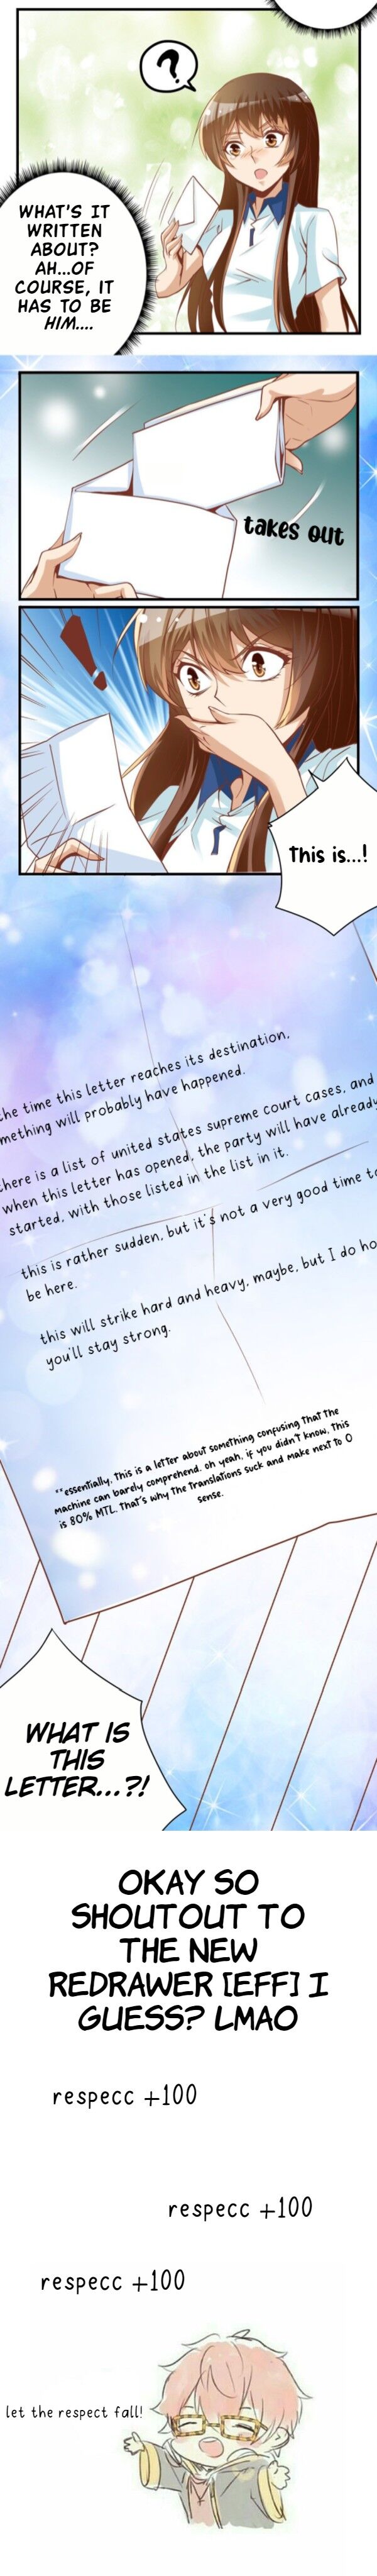 ?
WHAT'S IT
WRITTEN
ABOUT?
AH...OF
COURSE, IT
HAS TO BE
HIM....
takes out
!
This is...!
the time this letter reaches its destination,
mething will probably have happened.
here is a list of united states supreme court cases, and
when this letter has opened, the party will have already
started, with those listed in the list in it.
this is rather sudden, but it's not a very good time to
be here.
this will strike hard and heavy, maybe, but I do ho
you'll stay strong.
**essentially, this is a letter about something confusing that the
machine can barely comprehend. oh yeah, if you didn't know, this
is 80% MTL. that's why the translations suck and make next to 0
sense.
WHAT IS
THIS
LETTER...?!
OKAY SO
SHOUTOUT TO
THE NEW
REDRAWER [EFF] I
GUESS? LMAO
respecc +100
respecc +100
respecc +100
let the respect fall!